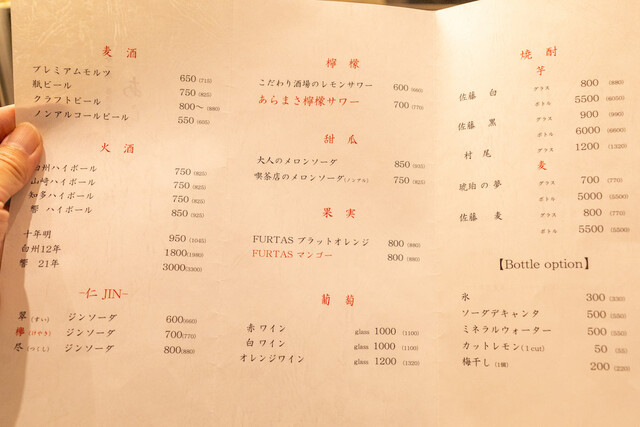 麦酒
プレミアムモルツ 650 (715)
瓶ビール 750 (825)
クラフトビール 800〜 (880)
ノンアルコールビール 550 (605)
火酒
白州ハイボール 750 (825)
山崎ハイボール 750 (825)
知多ハイボール 750 (825)
響 ハイボール 850 (935)
十年明 950 (1045)
白州12年 1800 (1980)
響 21年 3000 (3300)
-仁 JIN-
翠 (すい) ジンソーダ 600 (660)
欅 (けやき) ジンソーダ 700 (770)
尽 (つくし) ジンソーダ 800 (880)
檸檬
こだわり酒場のレモンサワー 600 (660)
あらまさ檸檬サワー 700 (770)
甜瓜
大人のメロンソーダ 850 (935)
喫茶店のメロンソーダ (ノンアル) 750 (825)
果実
FURTAS ブラットオレンジ 800 (880)
FURTAS マンゴー 800 (880)
葡萄
赤ワイン glass 1000 (1100)
白ワイン glass 1000 (1100)
オレンジワイン glass 1200 (1320)
焼酎
芋
佐藤 白 グラス 800 (880)
ボトル 5500 (6050)
佐藤 黒 グラス 900 (990)
ボトル 6000 (6600)
村尾 グラス 1200 (1320)
麦
琥珀の夢 グラス 700 (770)
ボトル 5000 (5500)
佐藤 麦 グラス 800 (770)
ボトル 5500 (5500)
【Bottle option】
氷 300 (330)
ソーダデキャンタ 500 (550)
ミネラルウォーター 500 (550)
カットレモン (1cut) 50 (55)
梅干し (1個) 200 (220)